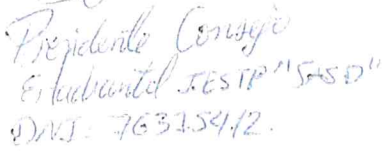 Presidente Consejo
Estudiantil IESTP "JASD"
DNI: 76325412.